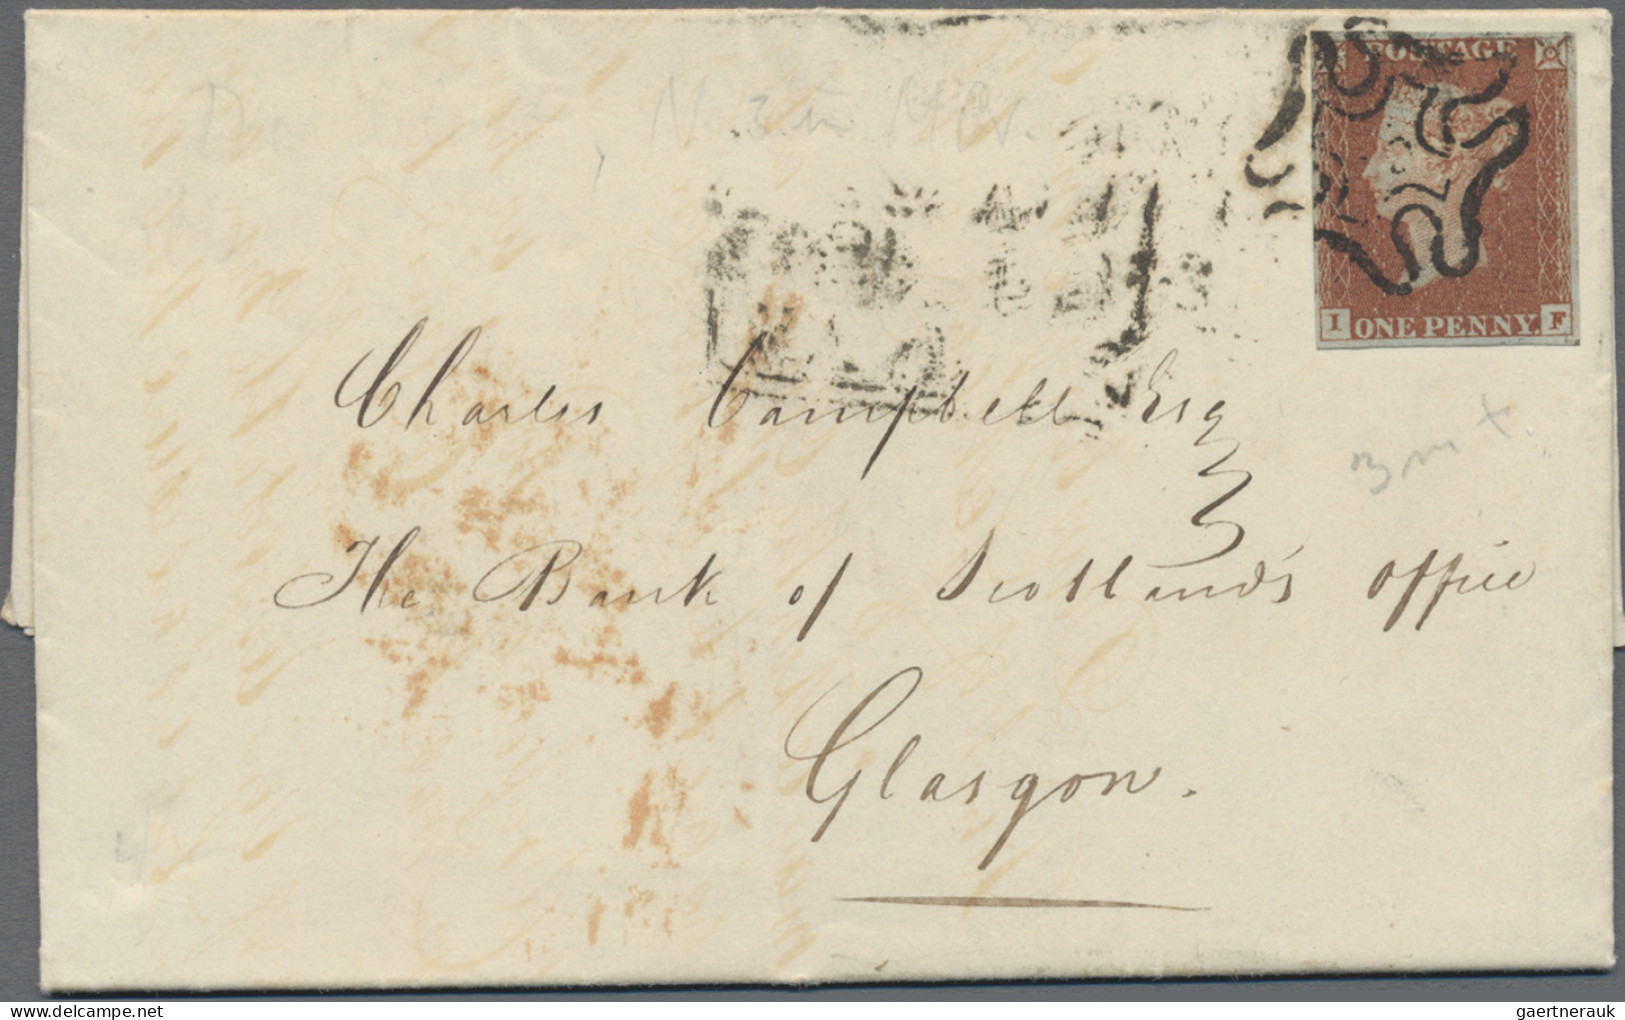 POSTAGE
I ONE PENNY F
Charles Campbell Esq
3 m x
The Bank of Scotland's Office
Glasgow.
gaertnerauk | delcampe.net